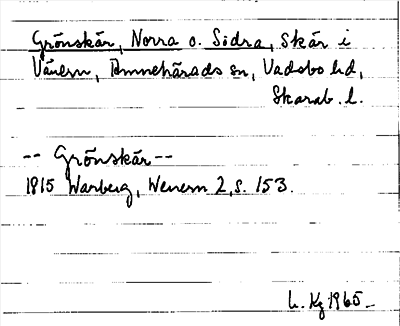 Grönskär, Norra o. Södra, skär i
Vänern, Amnehärads sn, Vadsbo hd,
Skarab. l.
-- Grönskär --
1815 Warberg, Wenern 2, s. 153.
1965